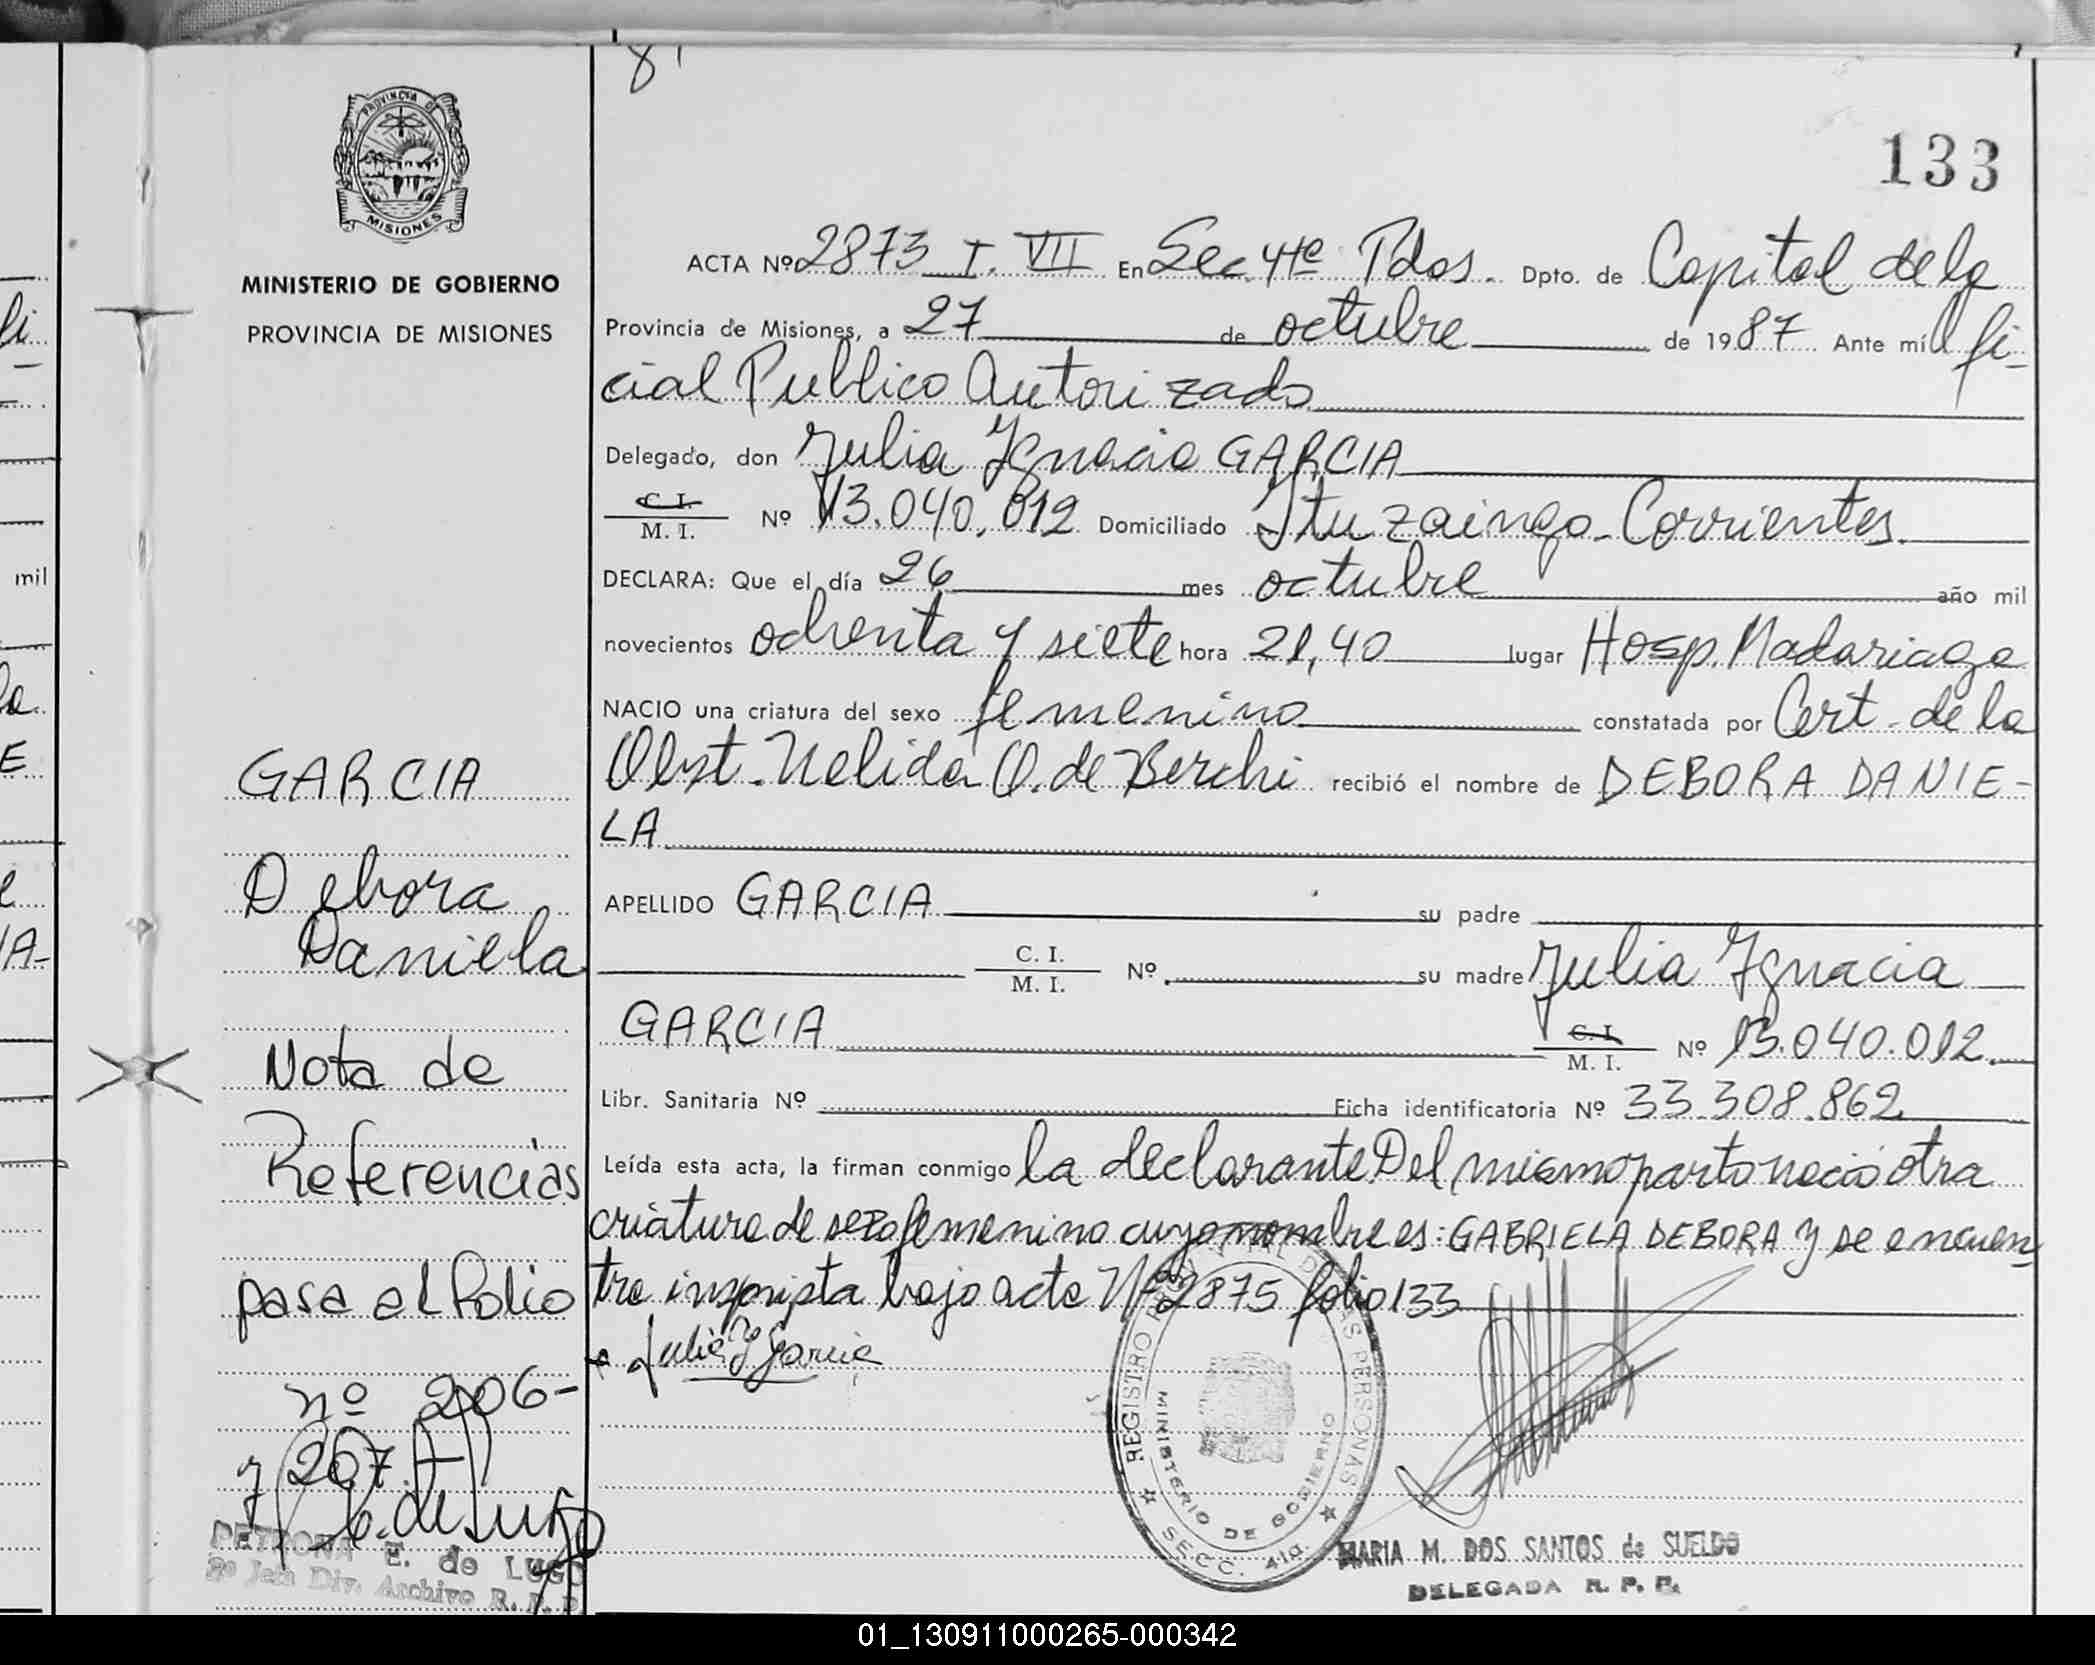 8
133
PROVINCIA DE
MISIONES
MINISTERIO DE GOBIERNO
PROVINCIA DE MISIONES
ACTA Nº 2873 T. VII En Sec. 4te Pdos. Dpto. de Capital de la
Provincia de Misiones, a 27 de octubre de 1987 Ante mí Ofi-
cial Publico Autorizado
Delegado, don Julia Ignacia GARCIA
C. I.
M. I. Nº 13.040.012 Domiciliado Ituzaingo - Corrientes.
DECLARA: Que el día 26 mes octubre año mil
novecientos ochenta y siete hora 21,40 lugar Hosp. Madariaga
NACIO una criatura del sexo femenino constatada por Cert. de la
Obst. Nelida O. de Berchi recibió el nombre de DEBORA DANIE-
LA
APELLIDO GARCIA su padre
C. I.
M. I. Nº su madre Julia Ignacia
GARCIA C. I.
M. I. Nº 13.040.012.
Libr. Sanitaria Nº Ficha identificatoria Nº 33.308.862
Leída esta acta, la firman conmigo la declarante Del mismo parto nació otra
criatura de sexo femenino cuyo nombre es: GABRIELA DEBORA y se encuen
tra inscripta bajo acta Nº 2875 folio 133
Julia Y Garcia
GARCIA
Debora
Daniela
Nota de
Referencias
pasa al Folio
nº 206-
y 207.
E. de Lugo
PETRONA E. de LUGO
Jefa Div. Archivo R. P. P.
REGISTRO PERSONAS
MINISTERIO DE GOBIERNO
SECC. 4ta.
MARIA M. DOS SANTOS de SUELDO
DELEGADA R. P. P.
mil
fi
E
IA-
01_130911000265-000342